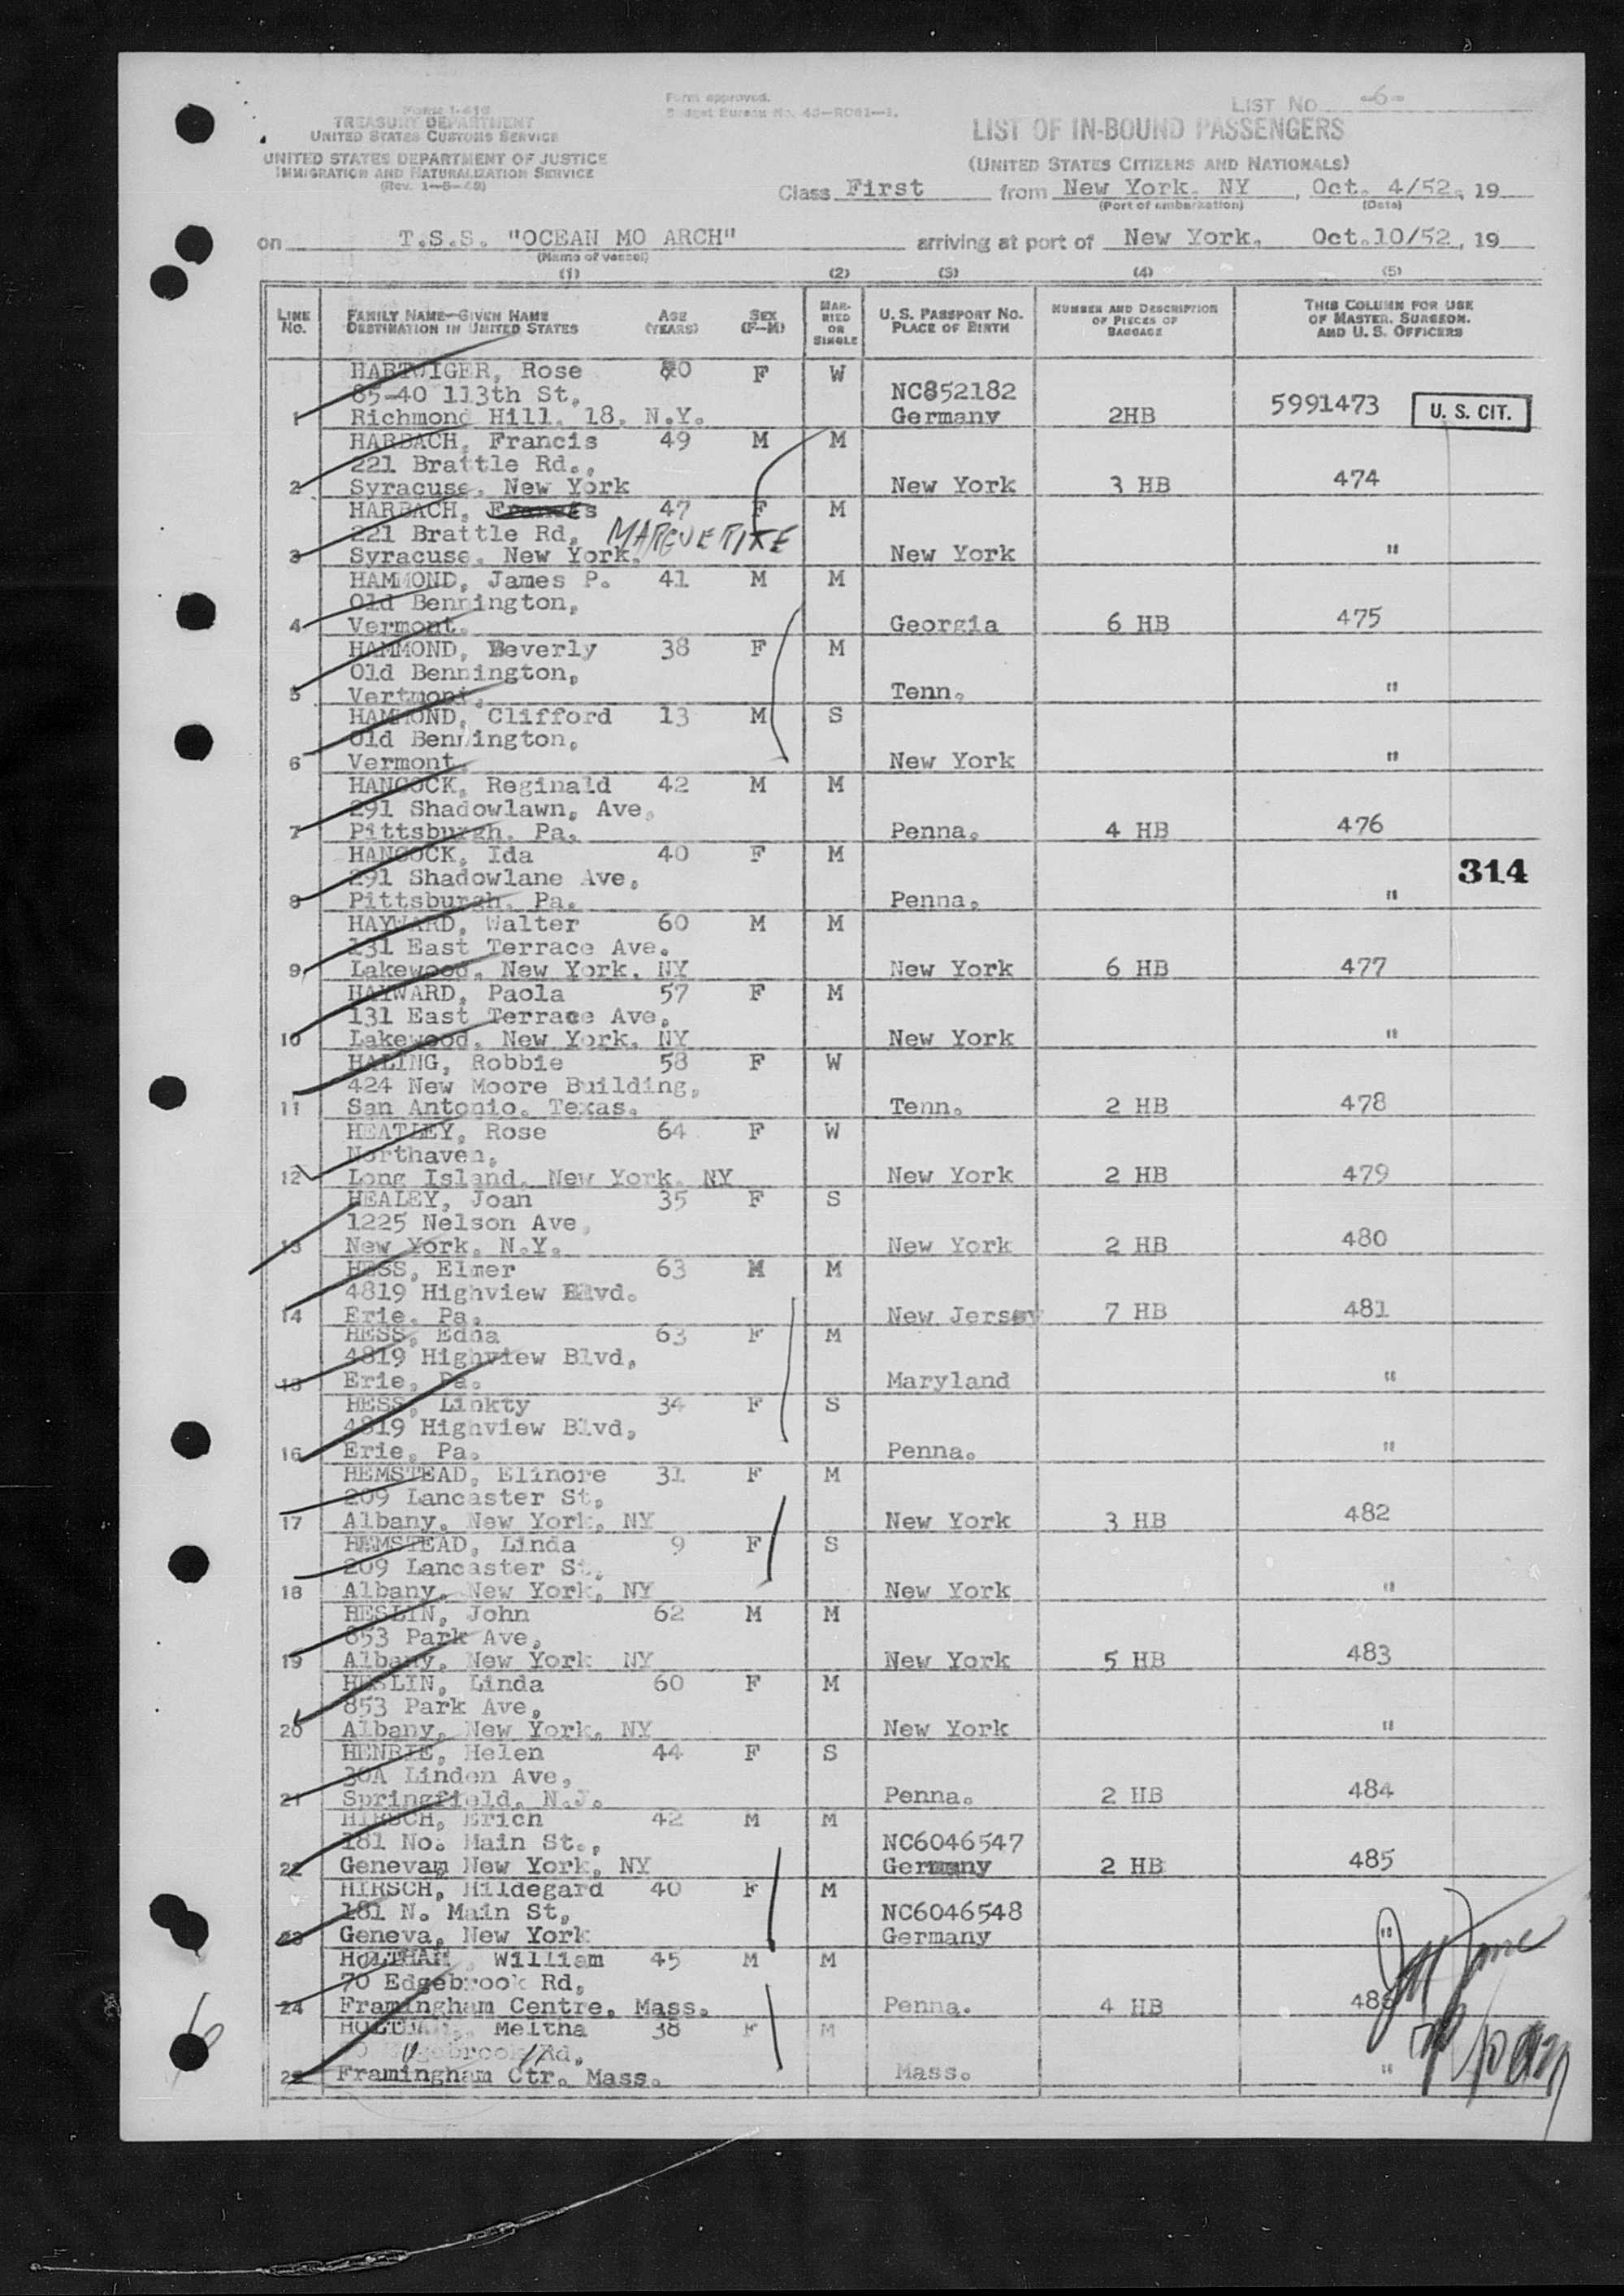 LIST NO. -6-
Form I-416
TREASURY DEPARTMENT
UNITED STATES CUSTOMS SERVICE
UNITED STATES DEPARTMENT OF JUSTICE
IMMIGRATION AND NATURALIZATION SERVICE
Form approved.
Budget Bureau No. 43-R081-1.
LIST OF IN-BOUND PASSENGERS
(UNITED STATES CITIZENS AND NATIONALS)
Class First from New York. NY , Oct. 4/52, 19
(Port of embarkation) (Date)
on T.S.S. "OCEAN MO ARCH" arriving at port of New York, Oct.10/52, 19
(Name of vessel)
(1) (2) (3) (4) (5)
LINE No. FAMILY NAME—GIVEN NAME DESTINATION IN UNITED STATES AGE (YEARS) SEX (F—M) MARRIED OR SINGLE U. S. PASSPORT NO. PLACE OF BIRTH NUMBER AND DESCRIPTION OF PIECES OF BAGGAGE THIS COLUMN FOR USE OF MASTER, SURGEON, AND U. S. OFFICERS
HARTWIGER, Rose F W
85-40 113th St, NC852182
1 Richmond Hill. 18. N.Y. Germany 2HB 5991473 U. S. CIT.
HARBACH, Francis 49 M M
221 Brattle Rd.,
2 Syracuse. New York New York 3 HB 474
HARBACH, Francis 47 F M
221 Brattle Rd, MARGUERITE
3 Syracuse. New York. New York "
HAMMOND, James P. 41 M M
Old Bennington,
4 Vermont. Georgia 6 HB 475
HAMMOND, Beverly 38 F M
Old Bennington,
5 Vertmont. Tenn. "
HAMMOND, Clifford 13 M S
Old Bennington,
6 Vermont. New York "
HANCOCK, Reginald 42 M M
291 Shadowlawn, Ave,
7 Pittsburgh. Pa. Penna. 4 HB 476
HANCOCK, Ida 40 F M
291 Shadowlane Ave, 314
8 Pittsburgh. Pa. Penna. "
HAYWARD, Walter 60 M M
131 East Terrace Ave.
9 Lakewood. New York. NY New York 6 HB 477
HAYWARD, Paola 57 F M
131 East Terrace Ave,
10 Lakewood. New York. NY New York "
HALING, Robbie 58 F W
424 New Moore Building,
11 San Antonio. Texas. Tenn. 2 HB 478
HEATLEY, Rose 64 F W
Northaven,
12 Long Island. New York. NY New York 2 HB 479
HEALEY, Joan 35 F S
1225 Nelson Ave,
13 New York. N.Y. New York 2 HB 480
HESS, Elmer 63 M M
4819 Highview Blvd.
14 Erie. Pa. New Jersey 7 HB 481
HESS, Edna 63 F M
4819 Highview Blvd,
15 Erie, Pa. Maryland "
HESS, Linkty 34 F S
4819 Highview Blvd,
16 Erie, Pa. Penna. "
HEMSTEAD, Elinore 31 F M
209 Lancaster St,
17 Albany, New York, NY New York 3 HB 482
HEMSTEAD, Linda 9 F S
209 Lancaster St,
18 Albany, New York, NY New York "
HESLIN, John 62 M M
853 Park Ave,
19 Albany, New York NY New York 5 HB 483
HESLIN, Linda 60 F M
853 Park Ave,
20 Albany, New York, NY New York "
HENRIE, Helen 44 F S
30A Linden Ave,
21 Springfield. N.J. Penna. 2 HB 484
HIRSCH, Erich 42 M M
181 No. Main St., NC6046547
22 Geneva, New York, NY Germany 2 HB 485
HIRSCH, Hildegard 40 F M
181 N. Main St, NC6046548
23 Geneva, New York Germany "
HOLTHAM, William 45 M M
70 Edgebrook Rd,
24 Framingham Centre. Mass. Penna. 4 HB 486
Meltha 38 F M
Edgebrook Rd,
25 Framingham Ctr. Mass. Mass. "